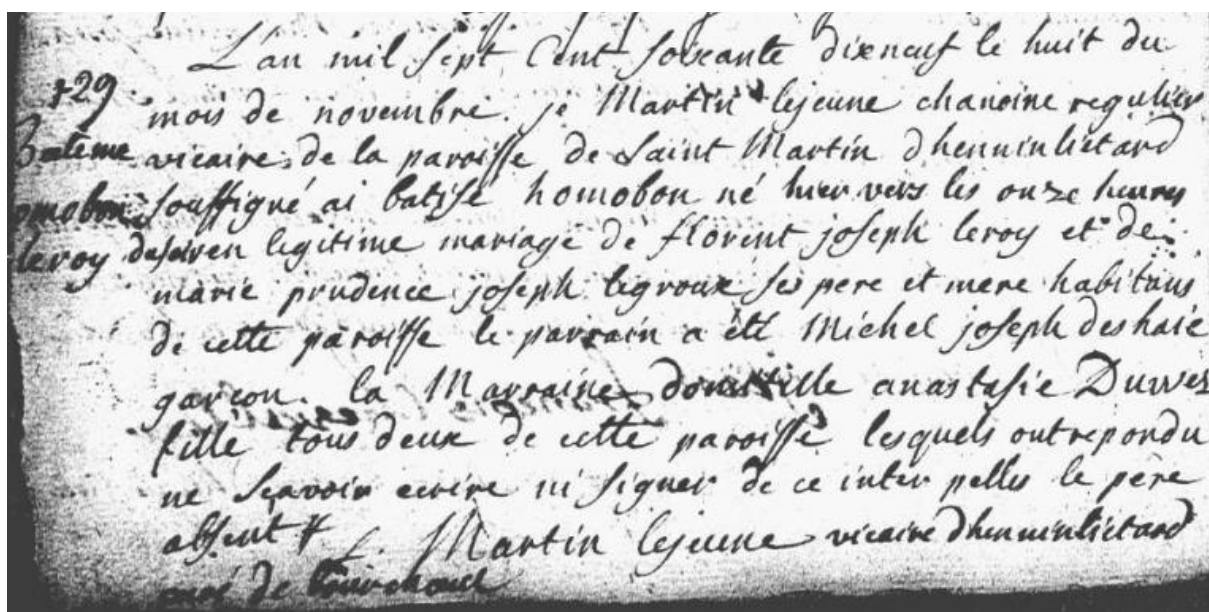 L'an mil sept Cent soixante dixneuf le huit du
129 mois de novembre je Martin lejeune chanoine regulier
Bateme vicaire de la paroisse de Saint Martin dhenninlietard
homobon soussigné ai batisé homobon né hier vers les onze heures
leroy en legitime mariage de florent joseph leroy et de
marie prudence joseph legroux ses pere et mere habitans
de cette paroisse le parrain a été Michel joseph deshaie
garcon. la Marraine domitille anastasie
fille tous deux de cette paroisse lesquels ont repondu
ne scavoir ecrire ni signer de ce inter pellés le père
absent
f. Martin lejeune vicaire dhenninlietard
de